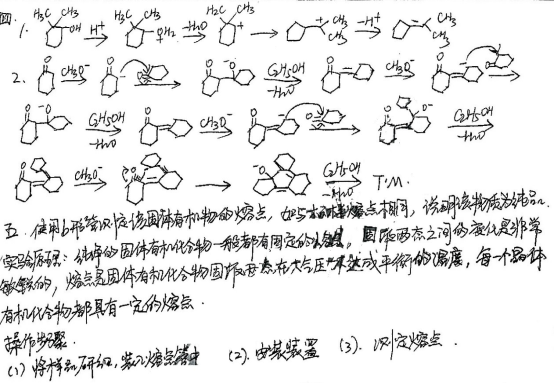 四.
1. H₃C CH₃ OH H⁺ H₃C CH₃ OH₂ -H₂O H₃C CH₃ + + CH₃ CH₃ -H⁺ CH₃ CH₃
2. O CH₃O⁻ O O O O C₂H₅OH -H₂O O CH₃O⁻ O O
O O C₂H₅OH -H₂O O CH₃O⁻ O O O O⁻ C₂H₅OH -H₂O
O CH₃O⁻ O ⁻O C₂H₅OH -H₂O T.M.
五. 使用b形管测定该固体有机物的熔点, 如与熔点相同, 说明该物质为纯品.
实验原理: 纯净的固体有机化合物一般都有固定的熔点, 固液两态之间的变化是非常
敏锐的, 熔点是固体有机化合物固液两态在大气压下达成平衡的温度, 每一个晶体
有机化合物都具有一定的熔点.
操作步骤.
(1) 将样品研细, 装入熔点管中 (2). 安装装置 (3). 测定熔点.